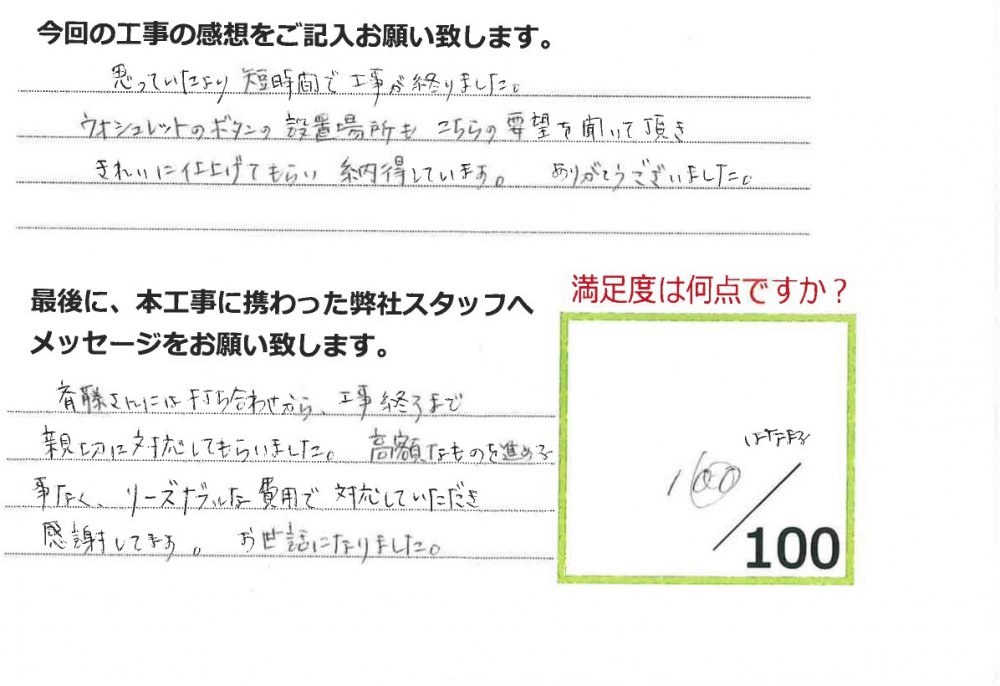 今回の工事の感想をご記入お願い致します。
思っていたより 短時間で 工事が終りました。
ウォシュレットのボタンの 設置場所も こちらの要望を聞いて頂き
きれいに仕上げてもらい 納得しています。 ありがとうございました。
最後に、本工事に携わった弊社スタッフへ
メッセージをお願い致します。
斉藤さんには 打ち合わせから、工事終了まで
親切に対応してもらいました。 高額なものを進める
事なく、リーズナブルな 費用で 対応していただき
感謝してます。 お世話になりました。
満足度は何点ですか？
100
/100